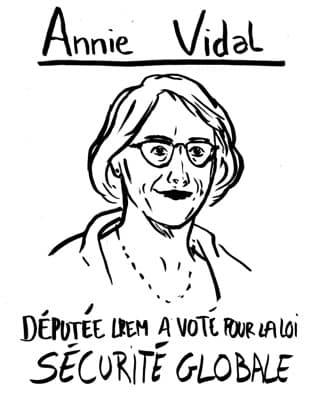 Annie Vidal
DÉPUTÉE LREM A VOTÉ POUR LA LOI
SÉCURITÉ GLOBALE